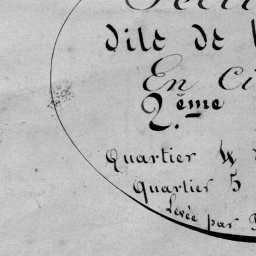 dite de
En
2.ème
Quartier 4
Quartier 5
Levée par